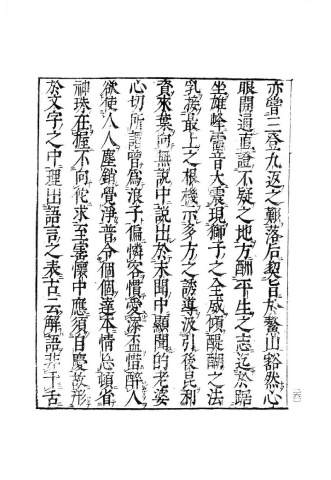 亦嘗三登九返之艱落后契旨於鰲山豁然心
眼開通直證不疑之地方酬平生之志迄於踞
坐雄峰震音大震現獅子之全威傾醍醐之法
乳接最上之根機示多方之誘導汲引後昆利
資來葉向無說中說出於未聞中顯聞的老婆
心切所謂曾為浪子偏憐客慣愛添盃惜醉人
欲使人人塵銷覺淨普令個個達本情忘頓省
神珠在握不向佗求至寶懷中應須自慶故形
於文字之中理出語言之表古云解語非干舌